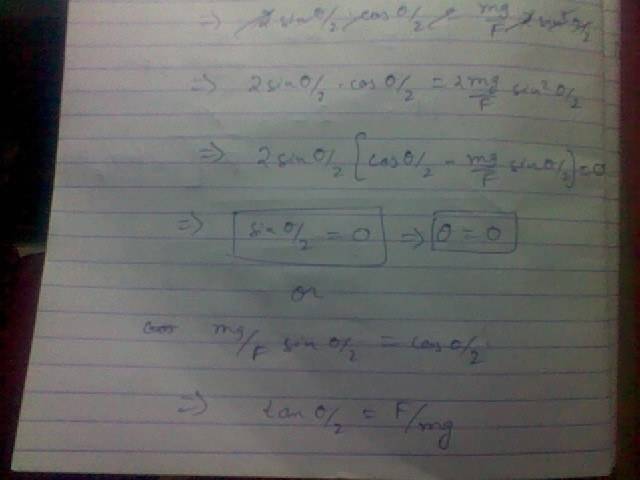 ⇒ 2 sin θ/2 · cos θ/2 = mg/F 2 sin² θ/2
⇒ 2 sin θ/2 · cos θ/2 = 2 mg/F sin² θ/2
⇒ 2 sin θ/2 [cos θ/2 - mg/F sin θ/2] = 0
⇒ sin θ/2 = 0 ⇒ θ = 0
or
mg/F sin θ/2 = cos θ/2
⇒ tan θ/2 = F/mg